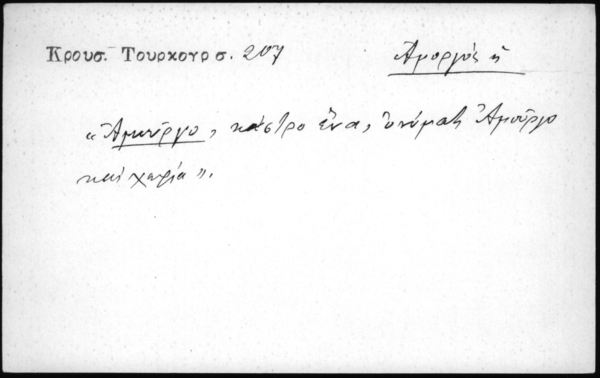 Κρουσ. Τουρκογρ σ. 207
Ἀμοργός ἡ
« Ἀμούργο, κάστρο ἕνα, ὀνόματι Ἀμούργο
καὶ χωρία ».